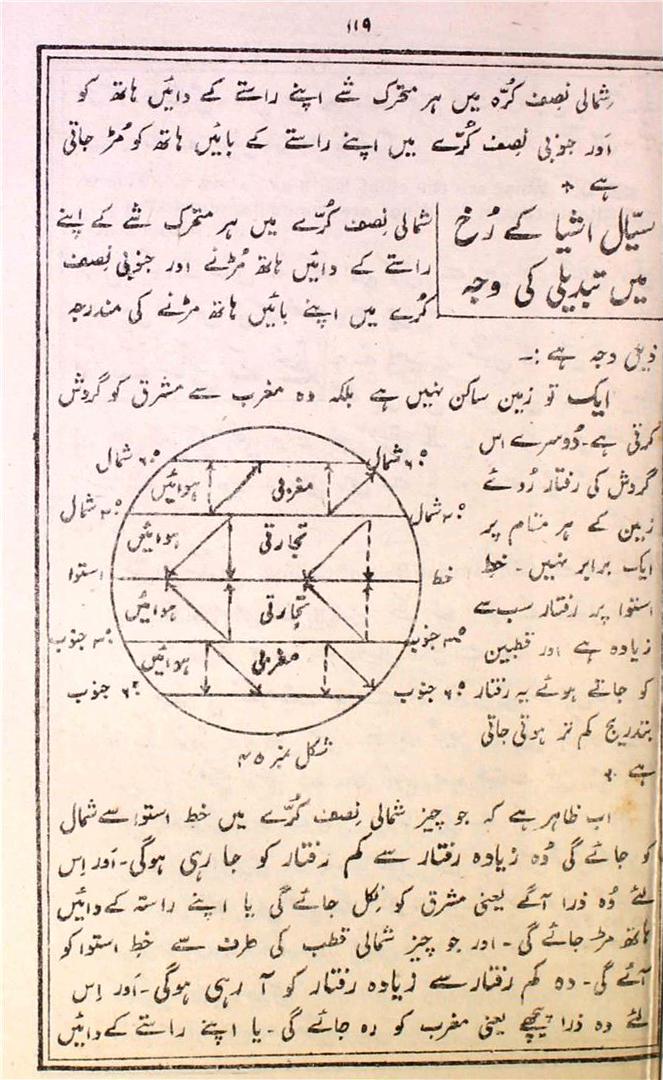 ۱۱۹
شمالی نِصف کُرّہ میں ہر متحرک شے اپنے راستے کے دائیں ہاتھ کو
اَور جنوبی نِصف کُرّے میں اپنے راستے کے بائیں ہاتھ کو مُڑ جاتی
ہے +
سیّال اشیا کے رُخ
میں تبدیلی کی وجہ
شمالی نِصف کُرّے میں ہر متحرک شے کے اپنے
راستے کے دائیں ہاتھ مُڑنے اور جنوبی نِصف
کُرے میں اپنے بائیں ہاتھ مڑنے کی مندرجہ
ذیل وجہ ہے :۔
ایک تو زمین ساکن نہیں ہے بلکہ وہ مغرب سے مشرق کو گردش
کرتی ہے۔ دُوسرے اس
گردش کی رفتار رُوئے
زمین کے ہر مقام پر
ایک برابر نہیں۔ خط
استوا پر رفتار سب سے
زیادہ ہے اور قطبین
کو جاتے ہوئے یہ رفتار
بتدریج کم تر ہوتی جاتی
ہے +
۶۰° شمال
۶۰° شمال
مغربی
ہوائیں
۳۰° شمال
۳۰° شمال
تجارتی
ہوائیں
خط
استوا
تجارتی
ہوائیں
۳۰° جنوب
۳۰° جنوب
مغربی
ہوائیں
۶۰° جنوب
۶۰° جنوب
شکل نمبر ۴۵
اب ظاہر ہے کہ جو چیز شمالی نِصف کُرّے میں خط استوا سے شمال
کو جائے گی وُہ زیادہ رفتار سے کم رفتار کو جا رہی ہوگی۔ اَور اِس
لئے وُہ ذرا آگے یعنی مشرق کو نِکل جائے گی یا اپنے راستہ کے دائیں
ہاتھ مڑ جائے گی۔ اور جو چیز شمالی قطب کی طرف سے خطِ استوا کو
آئے گی۔ وہ کم رفتار سے زیادہ رفتار کو آ رہی ہوگی۔ اَور اِس
لئے وہ ذرا پیچھے یعنی مغرب کو رہ جائے گی۔ یا اپنے راستے کے دائیں